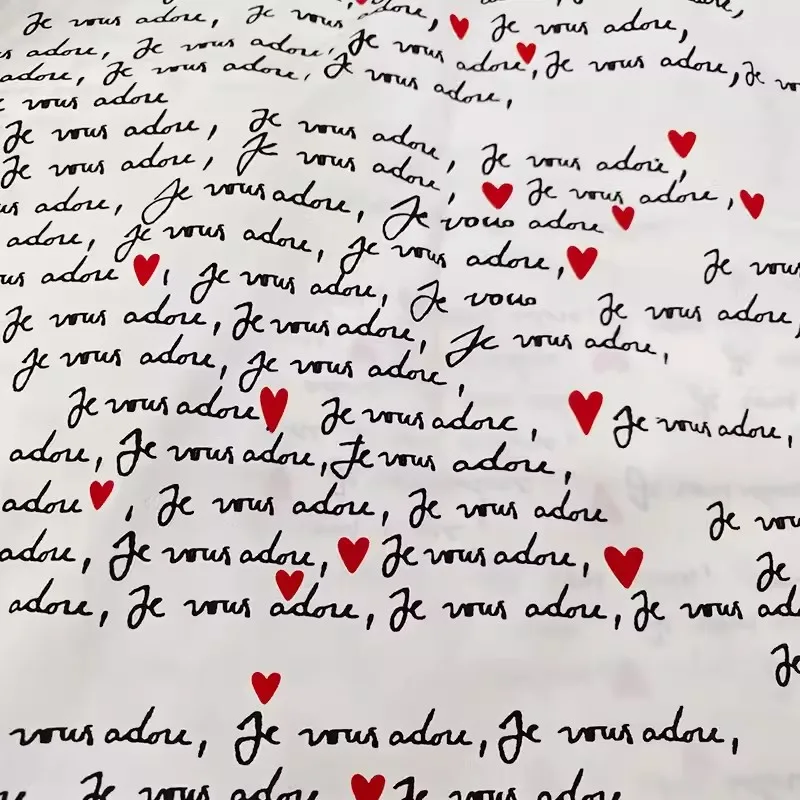 Je vous adore, Je vous adore, Je vous adore,
adore, Je vous adore, Je vous adore, Je vous adore,
adore, Je vous adore, Je vous adore,
vous adore
Je vous adore, Je vous adore, Je vous adore,
Je vous adore, Je vous adore, Je vous adore,
adore, Je vous adore, Je vous adore
adore, Je vous adore, Je vous adore, Je vous
adore, Je vous adore, Je vous Je vous adore,
Je vous adore, Je vous adore, Je vous adore,
Je vous adore, Je vous adore,
Je vous adore Je vous adore, Je vous adore,
adore, Je vous adore, Je vous adore,
adore, Je vous adore, Je vous adore Je
adore, Je vous adore, Je vous adore, Je
adore, Je vous adore, Je vous adore, Je vous
Je
vous adore, Je vous adore, Je vous adore,
Je vous adore, Je vous adore